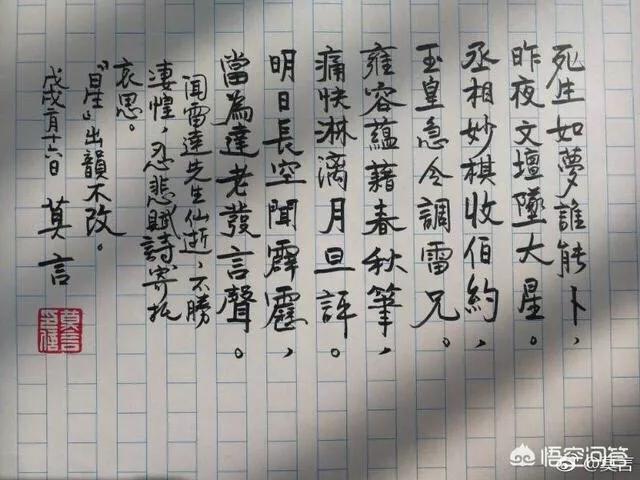 死生如夢誰能卜，
昨夜文壇墜大星。
丞相妙棋收伯約，
玉皇急令調雷兄。
雍容蘊藉春秋筆，
痛快淋漓月旦評。
明日長空聞霹靂，
當為達老發言聲。
聞雷達先生仙逝，不勝
悽惶，忍悲賦詩寄托
哀思。
“旦星”出韻不改。
戊戌二月十六日 莫言
莫言
悟空问答
@莫言